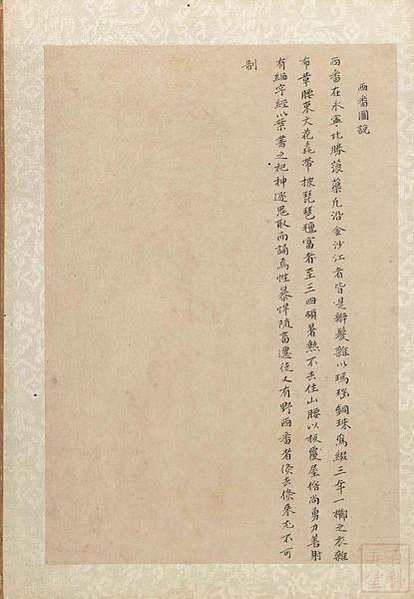 西番圖說
西番在永寧北勝蒗蕖凡沿金沙江者皆是辮髮雜以瑪瑙銅珠為綴三年一櫛之衣雜
布革腰束文花毳帶披琵琶氊富者至三四領暑熱不去住山腰以板覆屋俗尚勇力善射
有細字經以葉書之祀神逐鬼取而誦焉性暴悍隨畜遷徙人有野西番者倏去倏來尤不可
制